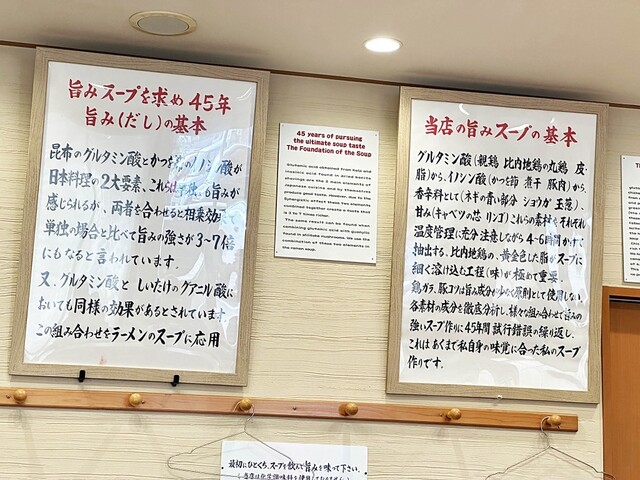 旨みスープを求め45年
旨み(だし)の基本
昆布のグルタミン酸とかつお節のイノシン酸が
日本料理の2大要素、これらは単独でも旨みが
感じられるが、両者を合わせると相乗効果で
単独の場合と比べて旨みの強さが3~7倍
にもなると言われています。
又、グルタミン酸としいたけのグアニル酸に
おいても同様の効果があるとされています
この組み合わせをラーメンのスープに応用
45 years of pursuing
the ultimate soup taste
The Foundation of the Soup
Glutamic acid obtained from kelp and
inosinic acid found in dried bonito
shavings are the 2 main elements of
Japanese cuisine and by themselves
produce good taste. However, due to the
Synergistic effect these two element
combined together create a taste that
is 3 to 7 times richer.
The same result can be found when
combining glutamic acid with guanylic
found in shiitake mushrooms. We use the
combination of these two elements in
the ramen soup.
当店の旨みスープの基本
グルタミン酸(親鶏 比内地鶏の丸鶏 皮
脂)から、イノシン酸(かつを節 煮干 豚肉)から、
香辛料として(ネギの青い部分 ショウガ 玉葱)、
甘み(キャベツの芯 リンゴ)これらの素材をそれぞれ
温度管理に充分注意しながら4~6時間かけて
抽出する、比内地鶏の、黄金色した脂がスープに
細く溶け込む工程(味)が極めて重要。
鶏ガラ、豚コツは旨み成分が少なく原則として使用しない
各素材の成分を徹底分析し、様々な組み合わせで旨みの
強いスープ作りに45年間試行錯誤の繰り返し、
これはあくまで私自身の味覚に合った私のスープ
作りです。
最初にひとくち、スープを飲んで旨みを味って下さい。
(当店は化学調味料を使用しておりません)